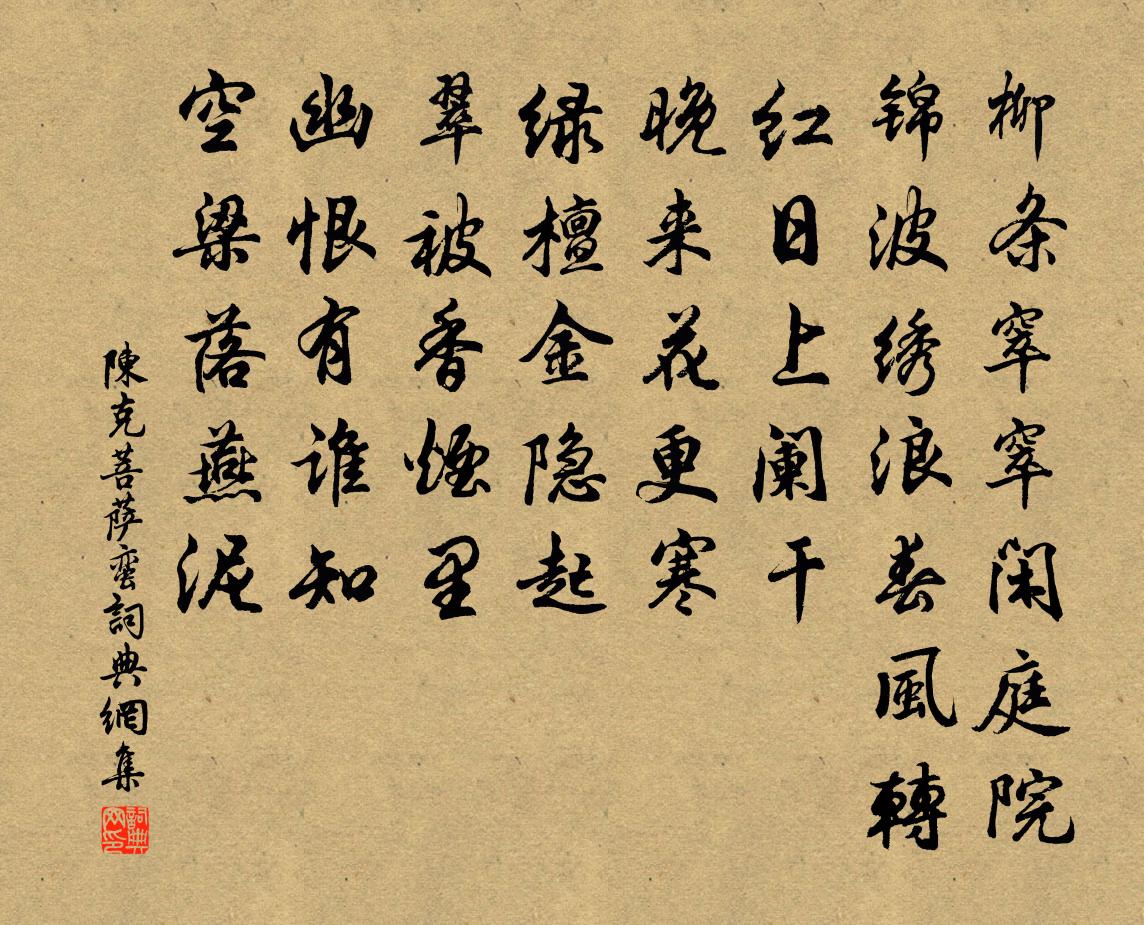 柳条窣窣闲庭院
锦波绣浪春風轉
红日上阑干
晚来花更寒
绿檀金隐起
翠被香煙里
幽恨有谁知
空梁落燕泥
陳克菩萨蛮詞典網集
詞典网印